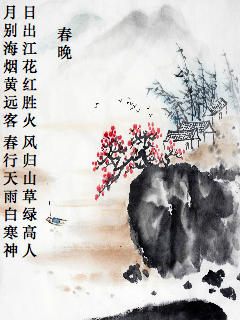 春晚
日出江花红胜火 风归山草绿高人
月别海烟黄远客 春行天雨白寒神